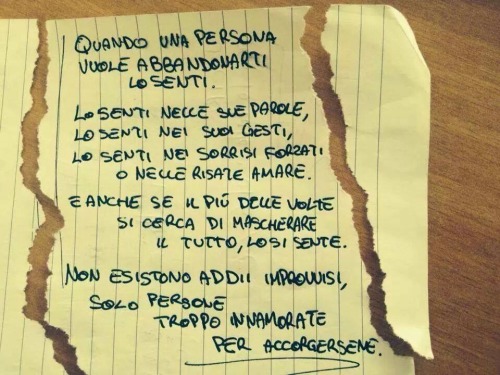 QUANDO UNA PERSONA
VUOLE ABBANDONARTI
LO SENTI.
LO SENTI NELLE SUE PAROLE,
LO SENTI NEI SUOI GESTI,
LO SENTI NEI SORRISI FORZATI
O NELLE RISATE AMARE.
E ANCHE SE IL PIÙ DELLE VOLTE
SI CERCA DI MASCHERARE
IL TUTTO, LO SI SENTE.
NON ESISTONO ADDII IMPROVVISI,
SOLO PERSONE
TROPPO INNAMORATE
PER ACCORGERSENE.